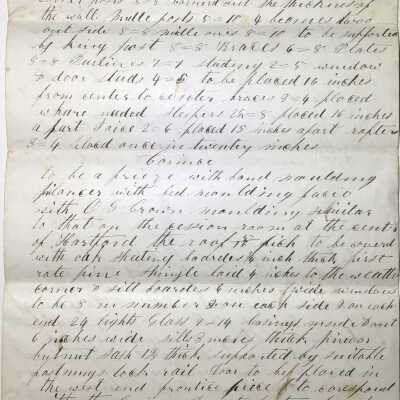 posts 8=8 and the thickness of
the wall Midle posts 8=10 4 beames
out side 8=8 midle ones 8=10 to be supported
by King post 8=8 Braces 6=8 Plates
8=8 Purlines 7=7 studing 2=5 window
& door studs 4=5 to be placed 16 inches
from center to center braces 3=4 placed
whare neded Sleepers 2½=8 placed 16 inches
apart Joice 2=6 placed 18 inches apart rafters
3=4 placed once in twenty inches
Cornice
to be a frieze with band moulding
with bed moulding facie
with O G Crown moulding similar
to that on the cession room at the center
of Hartford the roof pich to be coverd
with oak sheating boardes inch thick first
rate pine shingle laid 4 inches to the weather
corner & sill boardes 6 inches wide windows
to be 8 in number 3 on each side & on each
end 24 lights Glass 7=14 Casings inside & out
6 inches wide sills 3 inches thick
but not sash 1⅜ thick suported by suitable
fastnings lock rail door to be placed in
the west end frontice piece to corespond